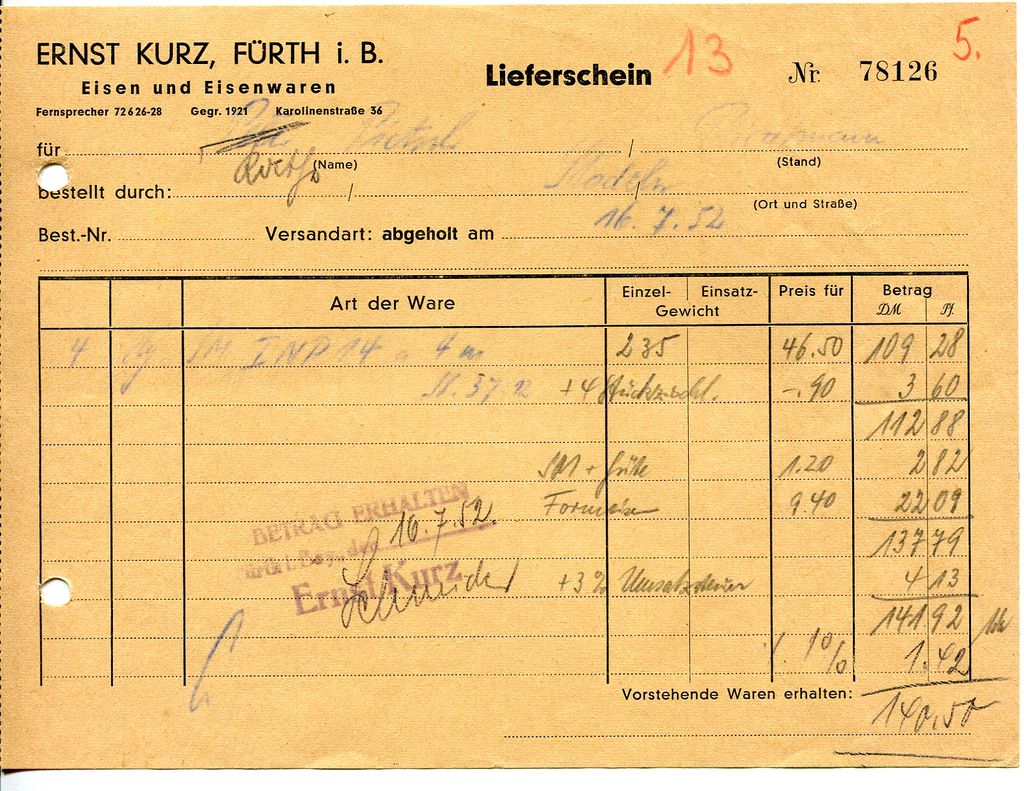 ERNST KURZ, FÜRTH i. B.
Eisen und Eisenwaren
Fernsprecher 72626-28 Gegr. 1921 Karolinenstraße 36
Lieferschein 13 Nr. 78126 5.
für
(Name) (Stand)
bestellt durch:
(Ort und Straße)
Best.-Nr. Versandart: abgeholt am 16. 7. 52
Art der Ware Einzel- Einsatz- Gewicht Preis für Betrag DM Pf.
4 INP 14 a 4 m 235 46.50 109 28
St. 37.12 +4 -.90 3 60
112 88
SM + Güte 1.20 2 82
Formeisen 9.40 22 09
BETRAG ERHALTEN
16.7.52
137 79
Ernst Kurz
+3% Umsatzsteuer 4 13
141 92
1% 1.42
Vorstehende Waren erhalten:
140,50